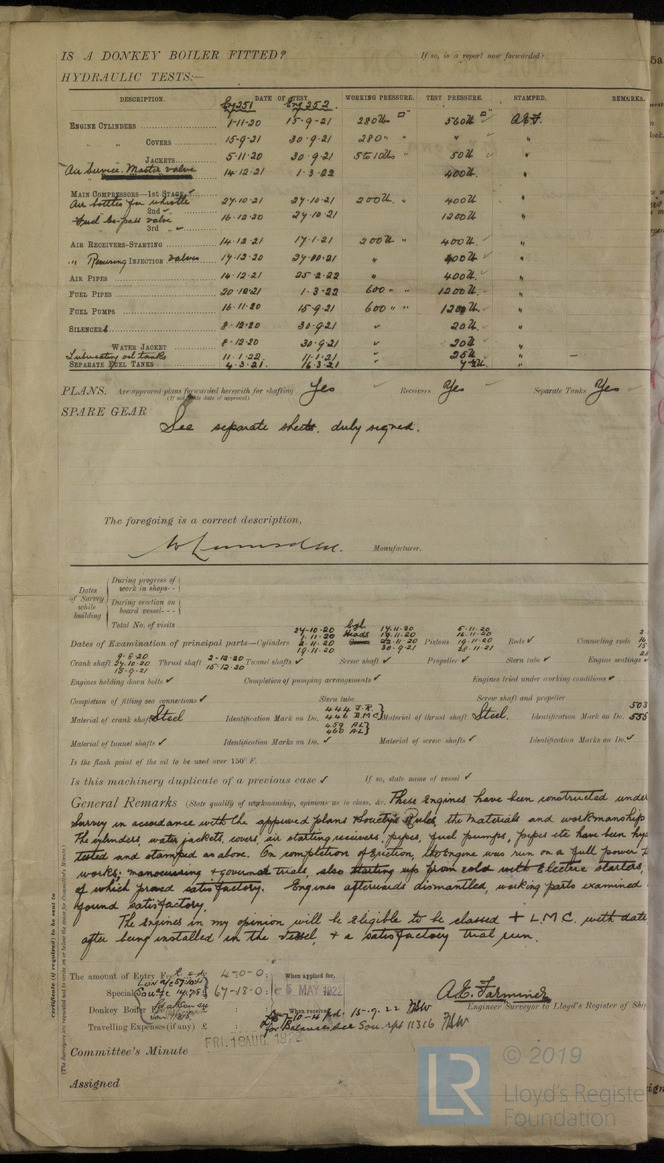 IS A DONKEY BOILER FITTED? If so, is a report now forwarded?
HYDRAULIC TESTS:—
DESCRIPTION. DATE OF TEST WORKING PRESSURE. TEST PRESSURE. STAMPED. REMARKS.
Eng 251 Eng 252
ENGINE CYLINDERS 1-11-20 15-9-21 280 lb □" 560 lb □" A.E.F.
" " COVERS 15-9-21 30-9-21 280 " " "
" JACKETS 5-11-20 30-9-21 5 to 10 lbs 50 lb "
Air Service Master valve 14-12-21 1-3-22 400 lb "
MAIN COMPRESSORS—1st STAGE
Air bottles for whistle 27-10-21 27-10-21 200 lb " 400 lb "
2nd "
Fuel by-pass valve 16-12-20 24-10-21 1200 lb "
3rd " "
AIR RECEIVERS-STARTING 14-12-21 17-1-21 200 lb " 400 lb "
" Reducing INJECTION valves 17-12-20 27-10-21 " 400 lb "
AIR PIPES 14-12-21 25-2-22 " 400 lb "
FUEL PIPES 20-12-21 1-3-22 600 " " 1200 lb "
FUEL PUMPS 16-11-20 15-9-21 600 " " 1200 lb "
SILENCERS 8-12-20 30-9-21 20 lb "
WATER JACKET 8-12-20 30-9-21 20 lb "
Lubricating oil tanks 11-1-22 11-1-21 25 lb " —
SEPARATE FUEL TANKS 4-3-21 16-3-21 "
PLANS. Are approved plans forwarded herewith for shafting Yes Receivers Yes Separate Tanks Yes
(If not, state date of approval)
SPARE GEAR
See separate sheets, duly signed.
The foregoing is a correct description,
Manufacturer.
Dates of Survey while building
During progress of work in shops--
During erection on board vessel---
Total No. of visits
Dates of Examination of principal parts—Cylinders 24-10-20 1-11-20 2-11-20 19-11-20 Cyl Heads 17-11-20 19-11-20 22-11-20 30-9-21 Pistons 5-11-20 16-11-20 19-11-20 28-11-21 Rods Connecting rods
Crank shaft 9-8-20 24-10-20 15-9-21 Thrust shaft 2-12-20 15-12-20 Tunnel shafts Screw shaft Propeller Stern tube Engine seatings
Engines holding down bolts Completion of pumping arrangements Engines tried under working conditions
Completion of fitting sea connections Stern tube Screw shaft and propeller
Material of crank shaft Steel Identification Mark on Do. 444 J.R. 446 B.M.C. 459 AL 460 AL Material of thrust shaft Steel. Identification Mark on Do. 503 555
Material of tunnel shafts Identification Marks on Do. Material of screw shafts Identification Marks on Do.
Is the flash point of the oil to be used over 150° F.
Is this machinery duplicate of a previous case If so, state name of vessel
General Remarks (State quality of workmanship, opinions as to class, &c. These Engines have been constructed under
Survey in accordance with the approved plans & Society's Rules, the Materials and workmanship
The cylinders, water jackets, covers, air starting receivers, pipes, fuel pumps, pipes etc have been hy
tested and stamped as above. On completion of Erection, the Engine was run on a full power
works; manoeuvring & governor trials, also starting up from cold with Electric starters,
of which proved satisfactory. Engines afterwards dismantled, working parts examined
found satisfactory.
The Engines in my opinion will be Eligible to be classed + L.M.C. with date
after being installed in the Vessel, & a satisfactory trial run.
Certificate (if required) to be sent to
(The Surveyors are requested not to write on or below the space for Committee's Minute.)
The amount of Entry Fee £ 4-0-0: When applied for,
Special 67-18-0: 5 MAY 1922
Donkey Boiler Fee When received,
15-9-22
Travelling Expenses (if any) £ for Balance see Sou. rpt 11316
A.E. Farminer
Engineer Surveyor to Lloyd's Register of Ship
Committee's Minute FRI. 18 AUG. 1922
Assigned
LR © 2019
Lloyd's Registe
Foundation